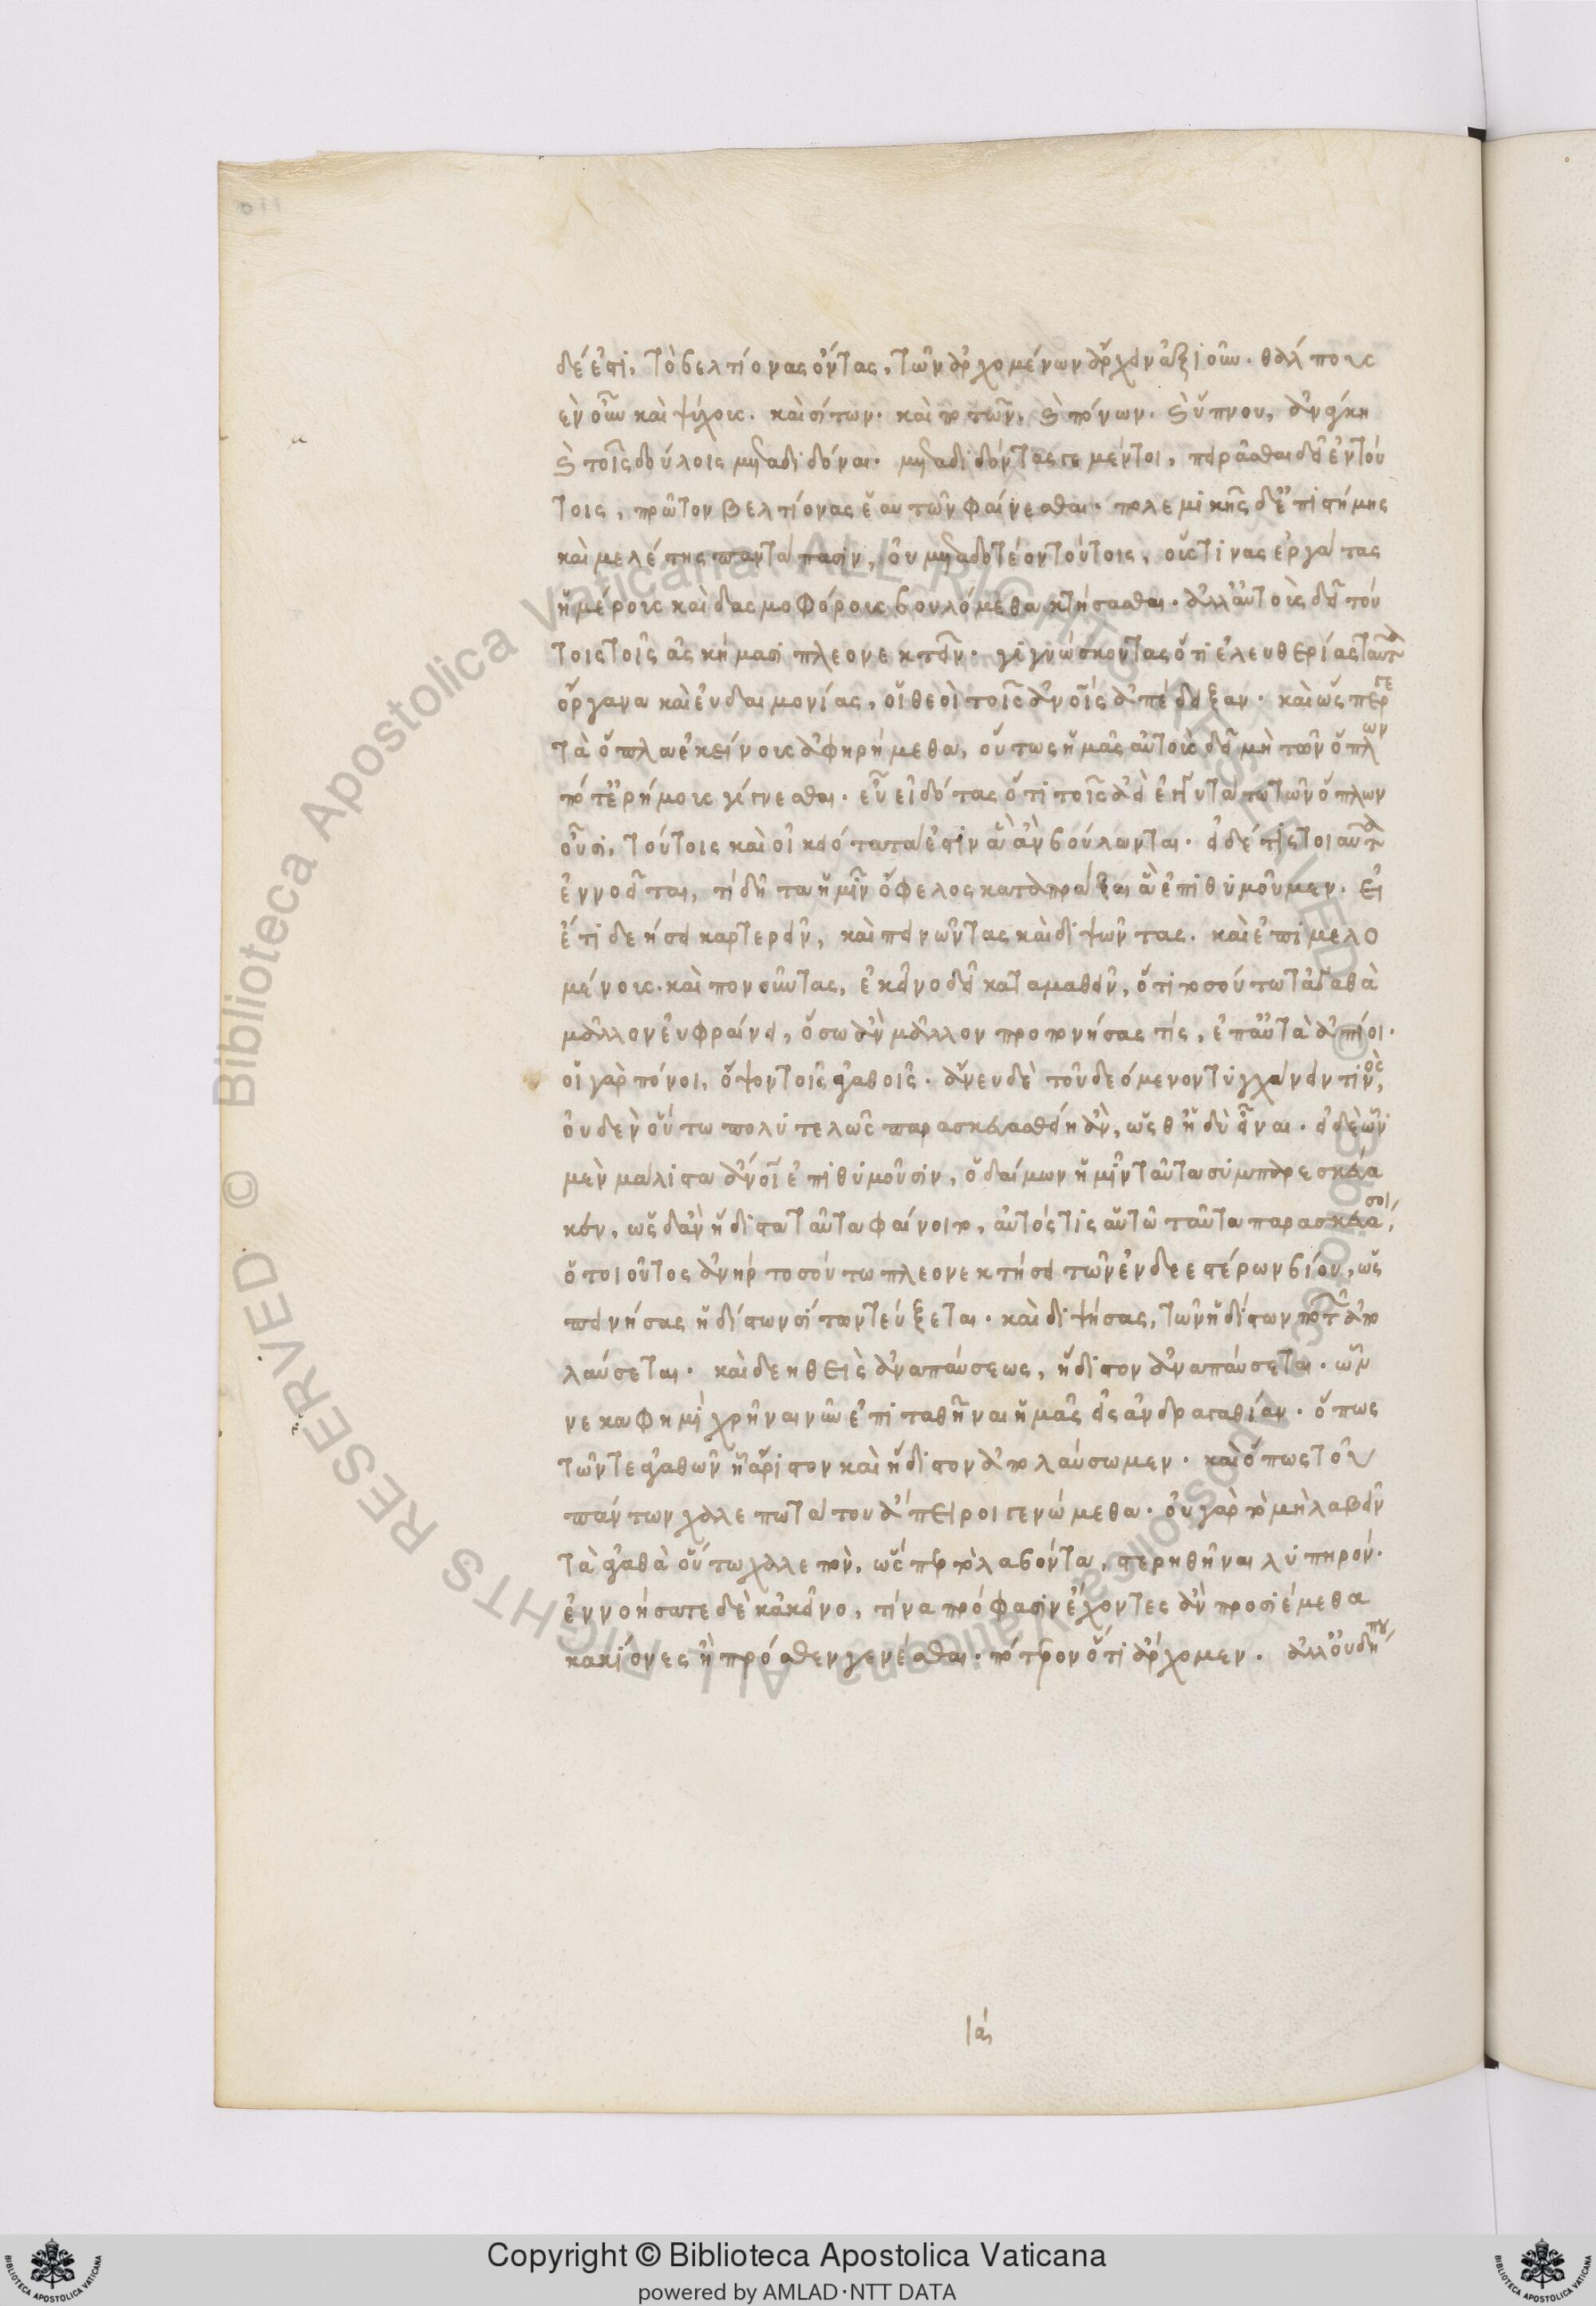 δέ ἐστι, τὸ βελτίονας ὄντας, τῶν ἀρχομένων ἄρχειν ἀξιοῦν. θάλπους
ἐν οὖν καὶ ψύχους. καὶ σίτων. καὶ ποτῶν. καὶ πόνων. καὶ ὕπνου, ἀνάγκη
καὶ τοῖς δούλοις μεταδιδόναι. μεταδιδόντας γε μέντοι, πειρᾶσθαι δεῖ ἐν τού
τοις, πρῶτον βελτίονας ἑαυτῶν φαίνεσθαι. πολεμικῆς δ' ἐπιστήμης
καὶ μελέτης παντάπασιν, οὐ μεταδοτέον τούτοις, οὕστινας ἐργάτας
ἡμέρους καὶ δασμοφόρους βουλόμεθα κτήσασθαι. ἀλλ' αὐτοὺς δεῖ τού
τοις τοῖς ἀσκήμασι πλεονεκτεῖν. γιγνώσκοντας ὅτι ἐλευθερίας ταῦτα
ὄργανα καὶ εὐδαιμονίας, οἱ θεοὶ τοῖς ἀνοις ἀπέδειξαν. καὶ ὥσπερ γε
τὰ ὅπλα ἐκείνους ἀφῃρήμεθα, οὕτως ἡμᾶς αὐτοὺς δεῖ μὴ τῶν ὅπλων
ποτ' ἐρήμους γίγνεσθαι. εὖ εἰδότας ὅτι τοῖς ἀεὶ ἐγγυτάτω τῶν ὅπλων
οὖσι, τούτοις καὶ οἰκειότατά ἐστιν ἃ ἂν βούλωνται. εἰ δέ τις τοιαῦτα
ἐννοεῖται, τί δῆτα ἡμῖν ὄφελος καταπρᾶξαι ἃ ἐπιθυμοῦμεν. εἰ
ἔτι δεήσει καρτερεῖν, καὶ πεινῶντας καὶ διψῶντας. καὶ ἐπιμελο
μένους. καὶ πονοῦντας, ἐκεῖνο δεῖ καταμαθεῖν, ὅτι τοσούτω τἀγαθὰ
μᾶλλον εὐφραίνει, ὅσω ἂν μᾶλλον προπονήσας τίς, ἐπ' αὐτὰ ἀπίοι.
οἱ γὰρ πόνοι, ὄψον τοῖς ἀγαθοῖς. ἄνευ δὲ τοῦ δεόμενον τυγχάνειν τινὸς,
οὐδὲν οὕτω πολυτελῶς παρασκευασθείη ἂν, ὥσθ' ἡδὺ εἶναι. εἰ δὲ ὧν
μὲν μάλιστα ἄνοι ἐπιθυμοῦσιν, ὁ δαίμων ἡμῖν ταῦτα συμπαρεσκεύα
κεν, ὡς δ' ἂν ἥδιστα ταῦτα φαίνοιτο, αὐτός τις αὑτῶ ταῦτα παρασκευάσοι,
ὁ τοιοῦτος ἀνὴρ τοσούτω πλεονεκτήσει τῶν ἐνδεεστέρων βίου, ὡς
πεινήσας ἡδίστων σίτων τεύξεται. καὶ διψήσας, τῶν ἡδίστων ποτῶν ἀπο
λαύσεται. καὶ δεηθεὶς ἀναπαύσεως, ἥδιστον ἀναπαύσεται. ὧν
νεκα φημὶ χρῆναι νῦν ἐπιταθῆναι ἡμᾶς εἰς ἀνδραγαθίαν. ὅπως
τῶν τε ἀγαθῶν ᾗ ἄριστον καὶ ἥδιστον ἀπολαύσωμεν. καὶ ὅπως τοῦ
πάντων χαλεπωτάτου ἄπειροι γενώμεθα. οὐ γὰρ τὸ μὴ λαβεῖν
τὰ ἀγαθὰ οὕτω χαλεπὸν, ὥσπερ τὸ λαβόντα, στερηθῆναι λυπηρόν.
ἐννοήσατε δὲ κἀκεῖνο, τίνα πρόφασιν ἔχοντες ἂν προσιέμεθα
κακίονες ἢ πρόσθεν γενέσθαι. πότερον ὅτι ἄρχομεν. ἀλλ' οὐ δήπου
ιά